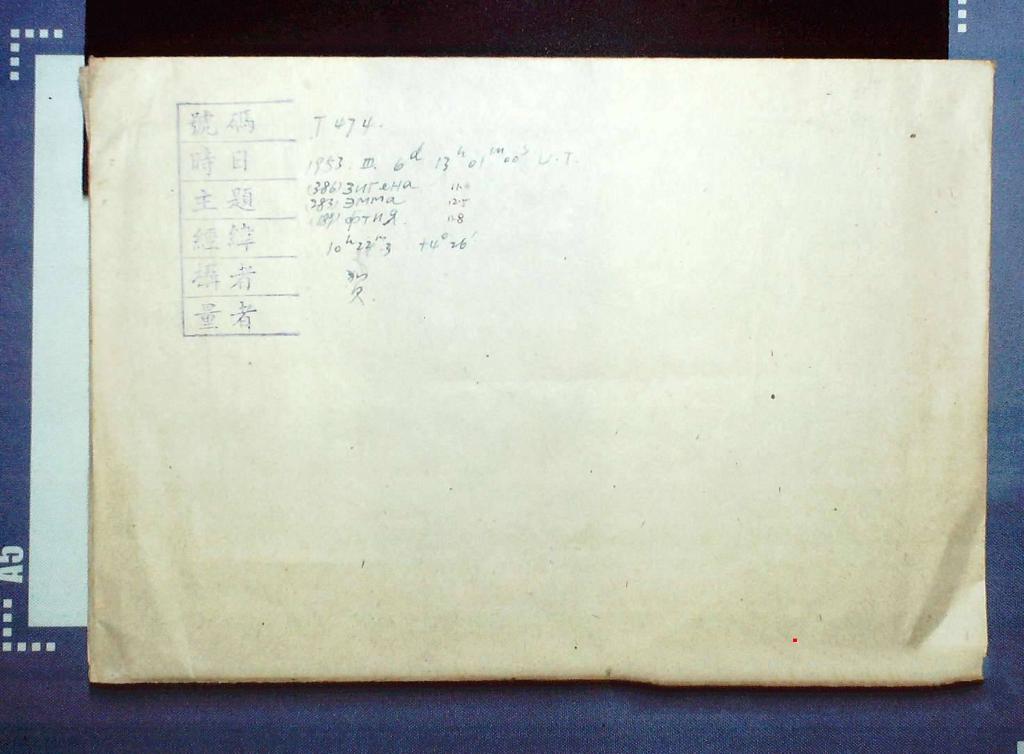 號碼 T 474.
時日 1953. III. 6d 13h 01m 00s U.T.
主題 (386) Зигена 11.4
(283) Эмма 12.5
(189) Фтия 11.8
經緯 10h 22m.3 +4° 26'
攝者
量者
A5